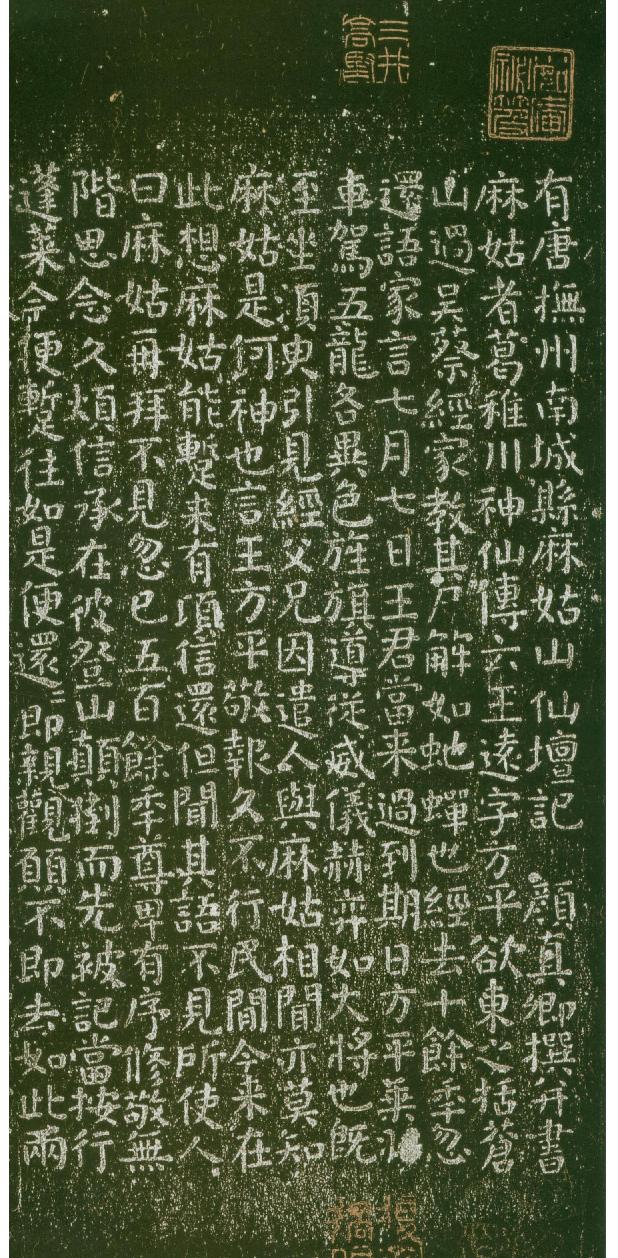 有唐撫州南城縣麻姑山仙壇記　顏真卿撰并書
麻姑者葛稚川神仙傳云王遠字方平欲東之括蒼
山過吳蔡經家教其尸解如虵蟬也經去十餘年忽
還語家言七月七日王君當来過到期日方平乘
車駕五龍各異色旌旗導從威儀赫弈如大將也既
至坐須臾引見經父兄因遣人與麻姑相聞亦莫知
麻姑是何神也言王方平敬報久不行民間今来在
此想麻姑能蹔来有頃信還但聞其語不見所使人
曰麻姑再拜不見忽已五百餘年尊卑有序修敬無
階思念久煩信承在彼登山顛倒而先被記當按行
蓬萊今便蹔往如是便還還即親觀願不即去如此兩
三井